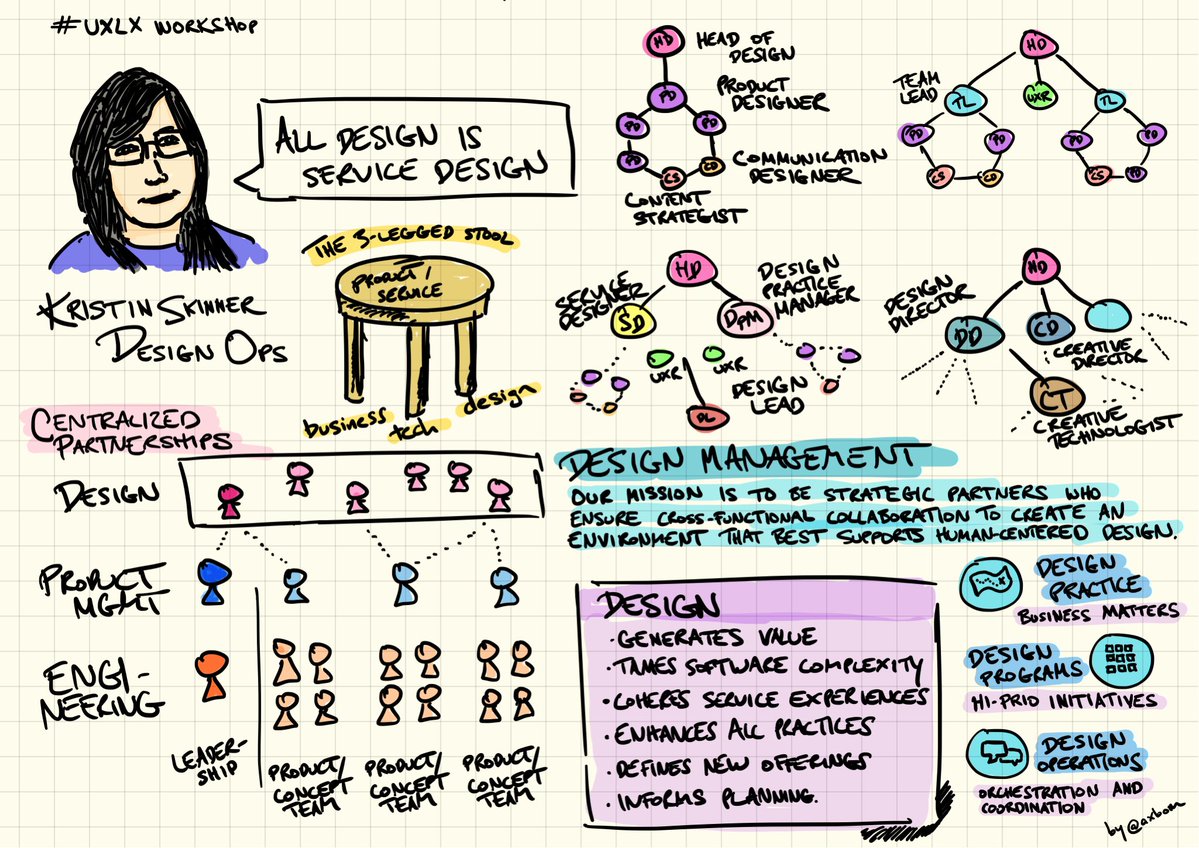 #UXLX WORKSHOP
ALL DESIGN IS
SERVICE DESIGN
KRISTIN SKINNER
DESIGN OPS
THE 3-LEGGED STOOL
PRODUCT/
SERVICE
business
tech
design
HD
HEAD OF
DESIGN
PD
PRODUCT
DESIGNER
PD
PD
PD
PD
CS
CD
COMMUNICATION
DESIGNER
CONTENT
STRATEGIST
HD
TEAM
LEAD
TL
UXR
TL
PD
PD
PD
PD
CS
CD
CS
PD
HD
SERVICE
DESIGNER
DESIGN
PRACTICE
MANAGER
SD
DPM
UXR
UXR
DESIGN
LEAD
DL
HD
DESIGN
DIRECTOR
DD
CD
CREATIVE
DIRECTOR
CT
CREATIVE
TECHNOLOGIST
CENTRALIZED
PARTNERSHIPS
DESIGN
PRODUCT
MGMT
ENGI-
NEERING
LEADER-
SHIP
PRODUCT/
CONCEPT
TEAM
PRODUCT/
CONCEPT
TEAM
PRODUCT/
CONCEPT
TEAM
DESIGN MANAGEMENT
OUR MISSION IS TO BE STRATEGIC PARTNERS WHO
ENSURE CROSS-FUNCTIONAL COLLABORATION TO CREATE AN
ENVIRONMENT THAT BEST SUPPORTS HUMAN-CENTERED DESIGN.
DESIGN
· GENERATES VALUE
· TAMES SOFTWARE COMPLEXITY
· COHERES SERVICE EXPERIENCES
· ENHANCES ALL PRACTICES
· DEFINES NEW OFFERINGS
· INFORMS PLANNING.
DESIGN
PRACTICE
BUSINESS MATTERS
DESIGN
PROGRAMS
HI-PRIO INITIATIVES
DESIGN
OPERATIONS
ORCHESTRATION AND
COORDINATION
by @axbom